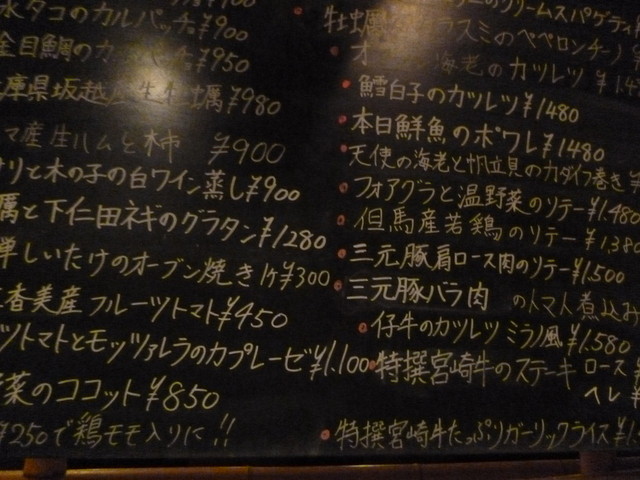 水タコのカルパッチョ¥900
金目鯛のカルパッチョ¥950
庫県坂越産生牡蠣¥980
マ産生ハムと柿 ¥900
サリと木の子の白ワイン蒸し¥900
蠣と下仁田ネギのグラタン¥1280
単しいたけのオーブン焼き1ヶ¥300
香美産フルーツトマト¥450
ツトマトとモッツァレラのカプレーゼ¥1.100
菜のココット¥850
¥250で鶏モモ入りに!!
クリームスパゲティ
牡蠣
ラスミのペペロンチーノ
海老のカツレツ ¥1.4
鱈白子のカツレツ¥1480
本日鮮魚のポワレ¥1480
天使の海老と帆立貝のカダイフ巻き
フォアグラと温野菜のソテー¥1.480
但馬産若鶏のソテー¥1.380
三元豚肩ロース肉のソテー¥1.500
三元豚バラ肉のトマト煮込み
仔牛のカツレツ ミラノ風¥1.580
特撰宮崎牛のステーキ ロース
ヘレ ¥
特撰宮崎牛たっぷりガーリックライス¥1.